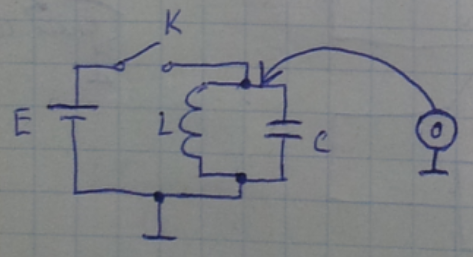 K
E
L
C